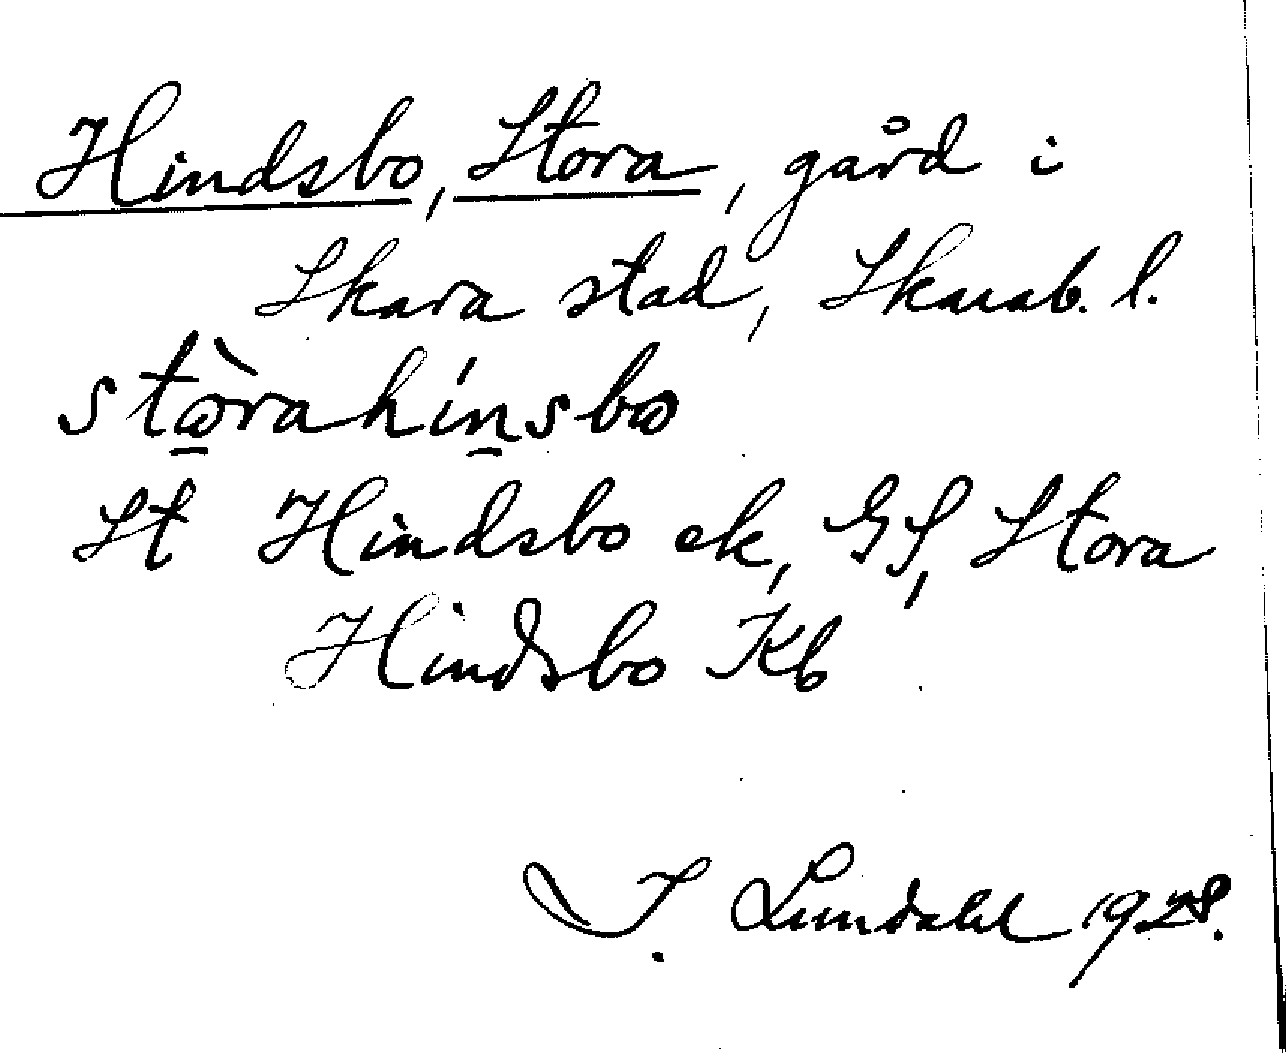 Hindsbo, Stora, gård i
Skara stad, Skarab. l.
stὼ̱rahíṉsbω
St Hindsbo ek, GS, Stora
Hindsbo Kb
I. Lundahl 1928.